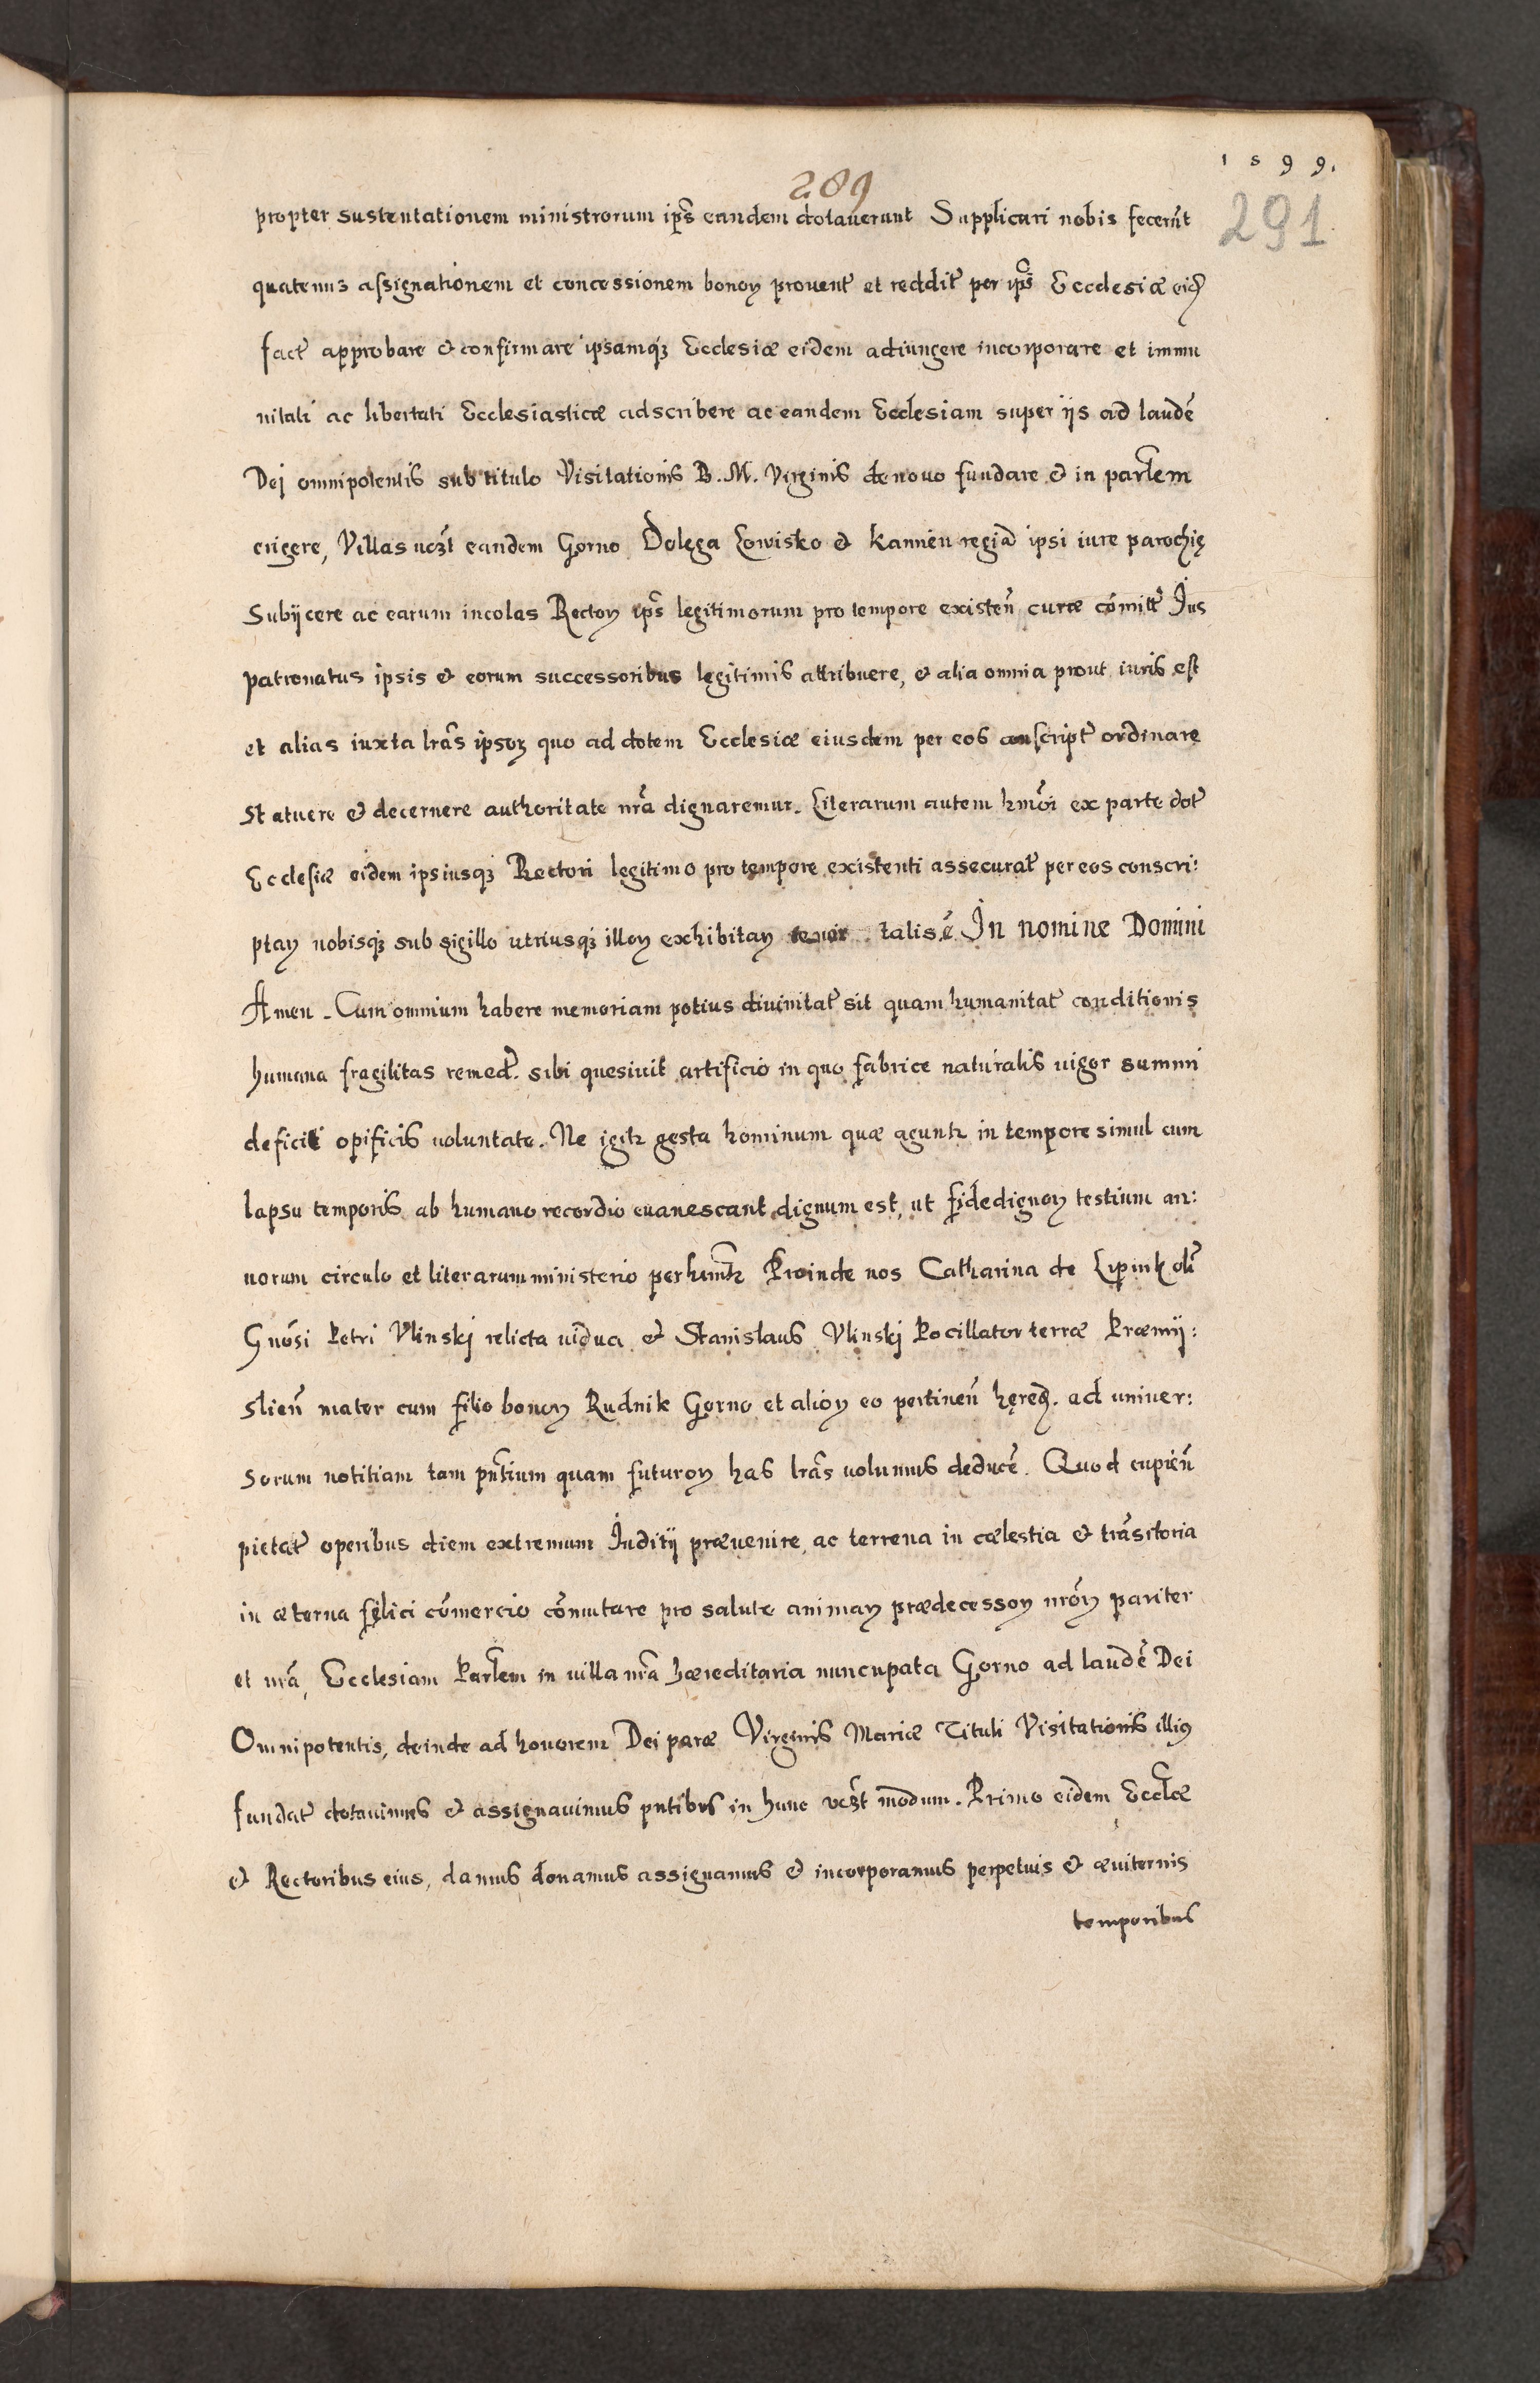 1599.
289
291
propter sustentationem ministrorum ipš eandem dotaverunt Supplicari nobis fecerũt
quatenus assignationem et concessionem bonoꝝ provent̃ et reddit̃ per ipš Ecclesiæ eid̃
fact̃ approbare & confirmare ipsamqꝫ Ecclesiæ eidem adiungere incorporare et immu
nitati ac libertati Ecclesiasticæ adscribere ac eandem Ecclesiam super ijs ad laudẽ
Dej omnipotentis sub titulo Visitationis B. M. Virginis de novo fundare & in parłem
erigere, Villas vcꝫt eandem Gorno Dolęga Łowisko & Kannien regiã ipsi iure parochię
Subijcere ac earum incolas Rectoꝝ ipš legitimorum pro tempore existeñ curæ cõmitt̃ Jus
patronatus ipsis & eorum successoribus legitimis attribuere, & alia omnia prout iuris est
et alias iuxta lrãs ipsoꝝ quo ad dotem Ecclesiæ eiusdem per eos conscript̃ ordinare
Statuere & decernere authoritate nrã dignaremur. Literarum autem hmõi ex parte dot̃
Ecclesiæ eidem ipsiusqꝫ Rectori legitimo pro tempore existenti assecurat̃ per eos conscri:
ptaꝝ nobisqꝫ sub sigillo utriusqꝫ illoꝝ exhibitaꝝ tenor talis ẽ. Jn nomine Domini
Amen. Cum omnium habere memoriam potius divinitat̃ sit quam humanitat̃ conditionis
humana fragilitas remed̃. sibi quesivit artificio in quo fabrice naturalis vigor summi
deficit opificis voluntate. Ne igitꝛ gesta hominum quæ aguntꝛ in tempore simul cum
lapsu temporis ab humano recordio evanescant dignum est, ut fidedignoꝝ testium an:
norum circulo et literarum ministerio perhennꝛ̃ Proinde nos Catharina de Lipink oł̃
Gnõsi Petri Vlinskj relicta vidua & Stanislaus Vlinskj Pocillator terræ Præmij:
slień mater cum filio bonoꝝ Rudnik Gorno et alioꝝ eo pertineñ hęred̃. ad univer:
sorum notitiam tam pñtium quam futuroꝝ has lrãs volumus deducẽ. Quod cupieñ
pietat̃ operibus diem extremum Juditij prævenire, ac terrena in cælestia & trãsitoria
in æterna felici cõmercio cõmutare pro salute animaꝝ prædecessoꝝ nrõꝝ pariter
et nrã, Ecclesiam Parłem in villa nrã hæreditaria nuncupata Gorno ad laudẽ Dei
Omnipotentis, deinde ad honorem Dei paræ Virginis Mariæ Tituli Visitationis illiꝰ
fundat̃ dotavimus & assignavimus pñtibus in hunc vcꝫt modum. Primo eidem Eccłæ
& Rectoribus eius, damus donamus assignamus & incorporamus perpetuis & æviternis
temporibus